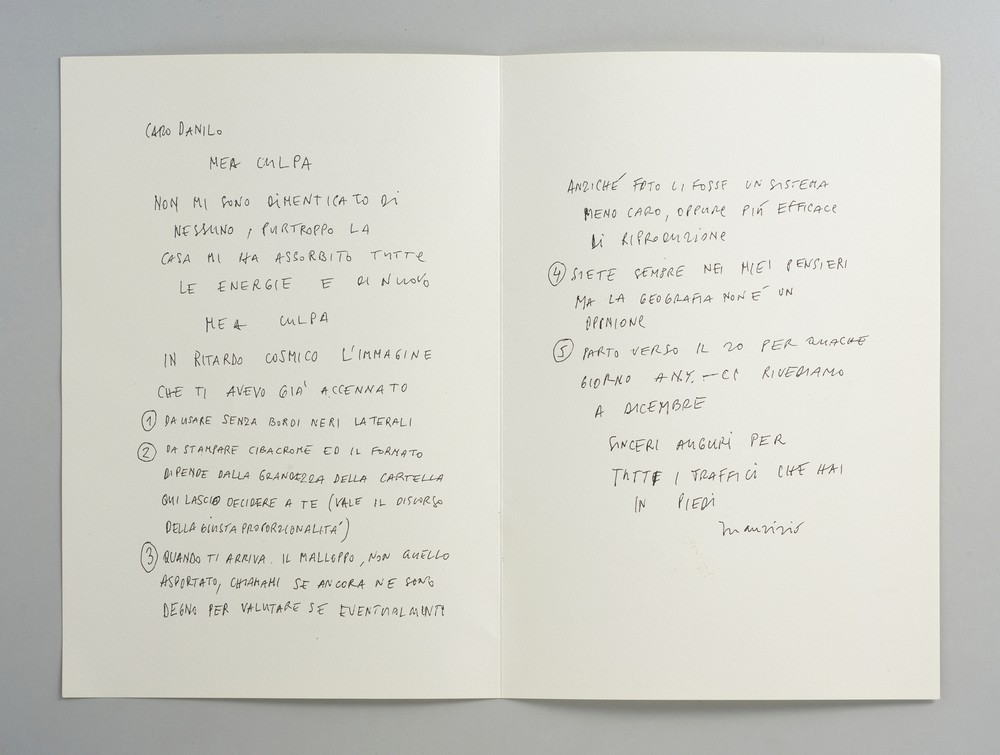 CARO DANILO
MEA CULPA
NON MI SONO DIMENTICATO DI
NESSUNO, PURTROPPO LA
CASA MI HA ASSORBITO TUTTE
LE ENERGIE E DI NUOVO
MEA CULPA
IN RITARDO COSMICO L'IMMAGINE
CHE TI AVEVO GIA' ACCENNATO
① DA USARE SENZA BORDI NERI LATERALI
② DA STAMPARE CIBACROME ED IL FORMATO
DIPENDE DALLA GRANDEZZA DELLA CARTELLA
QUI LASCIO DECIDERE A TE (VALE IL DISCORSO
DELLA GIUSTA PROPORZIONALITA')
③ QUANDO TI ARRIVA. IL MALLOPPO, NON QUELLO
ASPORTATO, CHIAMAMI SE ANCORA NE SONO
DEGNO PER VALUTARE SE EVENTUALMENTE
ANZICHÉ FOTO CI FOSSE UN SISTEMA
MENO CARO, OPPURE PIÚ EFFICACE
DI RIPRODUZIONE
④ SIETE SEMPRE NEI MIEI PENSIERI
MA LA GEOGRAFIA NON E' UN
OPINIONE
⑤ PARTO VERSO IL 20 PER QUACHE
GIORNO A N.Y. — CI RIVEDIAMO
A DICEMBRE
SINCERI AUGURI PER
TUTTE I TRAFFICI CHE HAI
IN PIEDI
Maurizio